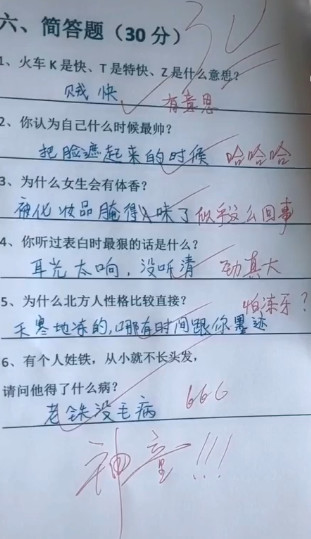 六、简答题（30分）
30
1、火车K是快、T是特快、Z是什么意思？
贼快 有意思
2、你认为自己什么时候最帅？
把脸遮起来的时候 哈哈哈
3、为什么女生会有体香？
被化妆品腌得入味了 似乎这么回事
4、你听过表白时最狠的话是什么？
耳光太响，没听清 劲真大
5、为什么北方人性格比较直接？ 怕冻牙？
天寒地冻的，哪有时间跟你墨迹
6、有个人姓铁，从小就不长头发，
请问他得了什么病？
老铁没毛病 666
神童!!!